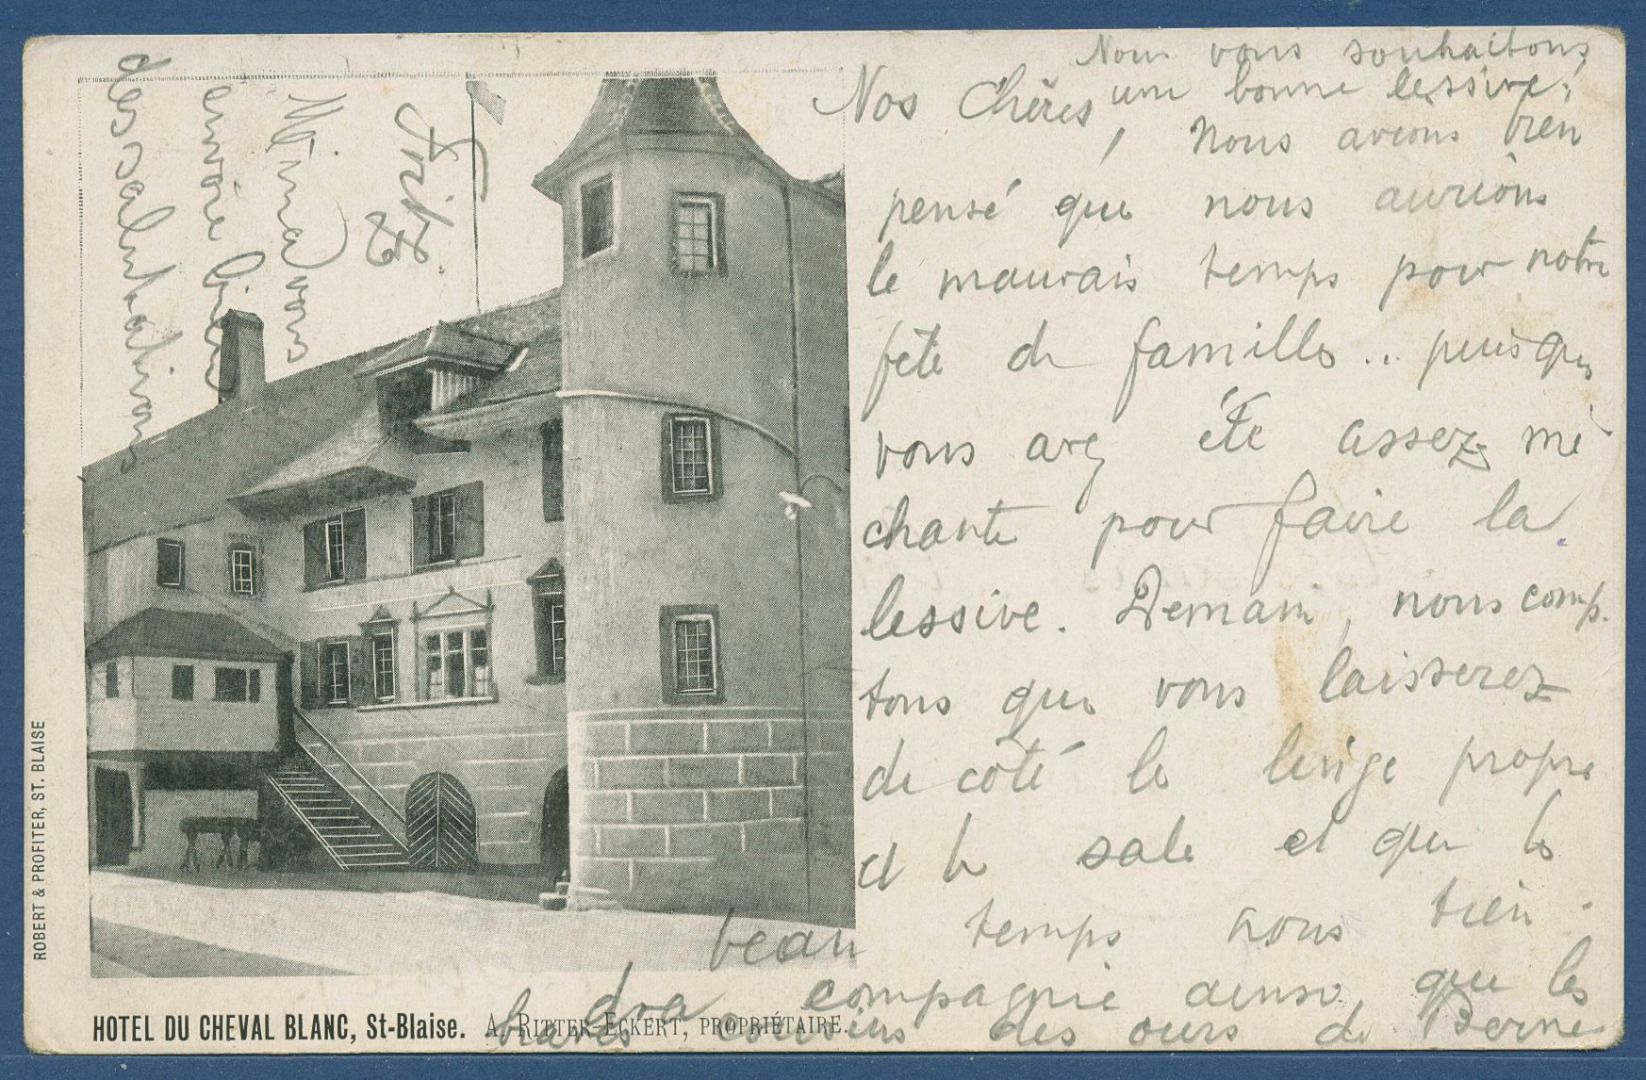 Nous vous souhaitons
une bonne lessive!
Nos Chères,
Nous avions bien
pensé que nous aurions
le mauvais temps pour notre
fête de famille .. puisque
vous avez été assez mé
chante pour faire la
lessive. Demain, nous comp.
tons que vous laisserez
de côté le linge propre
et le sale et que le
beau temps nous tien
dra compagnie ainsi que les
braves cousins des ours de Berne
Fritz
Mina vous
envoie bien
des salutations
ROBERT & PROFITER, ST. BLAISE
HOTEL DU CHEVAL BLANC, St-Blaise. A. RITTER-ECKERT, PROPRIÉTAIRE.